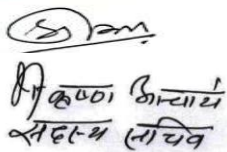 कृष्णा आचार्य
सदस्य सचिव